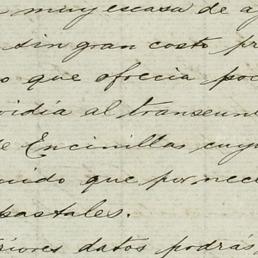 muy escasa de a
sin gran costo pr
o que ofrecia poc
vidia al transeun
e Encinillas cuy
uido que por nece
pastales.
riores datos podrás